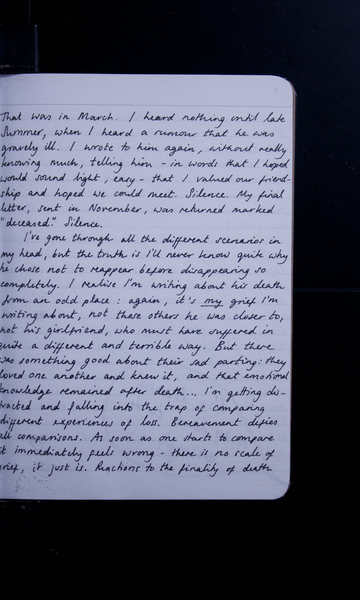 That was in March. I heard nothing until late
Summer, when I heard a rumour that he was
gravely ill. I wrote to him again, without really
knowing much, telling him - in words that I hoped
would sound light, easy - that I valued our friend-
ship and hoped we could meet. Silence. My final
letter, sent in November, was returned marked
"deceased". Silence.
I've gone through all the different scenarios in
my head, but the truth is I'll never know quite why
he chose not to reappear before disappearing so
completely. I realise I'm writing about his death
from an odd place: again, it's my grief I'm
writing about, not those others he was closer to,
not his girlfriend, who must have suffered in
quite a different and terrible way. But there
was something good about their sad parting: they
loved one another and knew it, and that emotional
knowledge remained after death... I'm getting dis-
tracted and falling into the trap of comparing
different experiences of loss. Bereavement defies
all comparisons. As soon as one starts to compare
it immediately feels wrong - there is no scale of
grief, it just is. Reactions to the finality of death